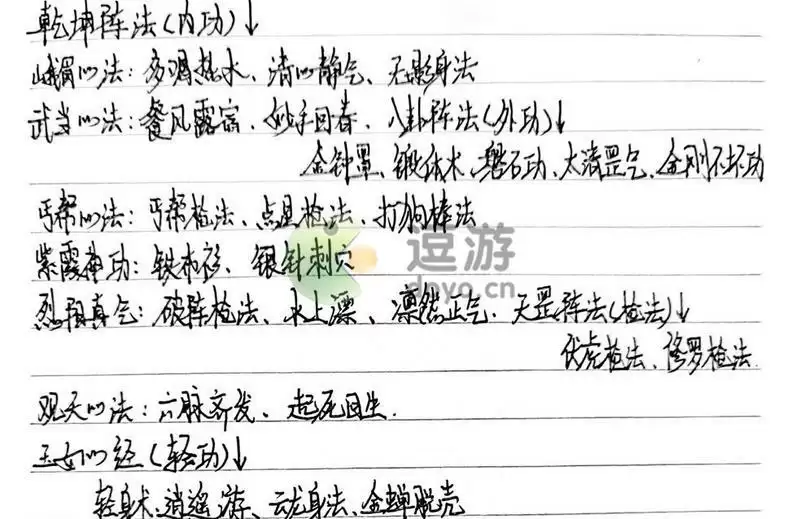 乾坤阵法(内功)↓
峨眉心法:多喝热水、清心静气、无影身法
武当心法:餐风露宿、妙手回春、八卦阵法(外功)↓
金钟罩、锻体术、磐石功、太清罡气、金刚不坏功
丐帮心法:丐帮枪法、点星枪法、打狗棒法
紫霞神功:铁布衫、银针刺穴
逗游
doyo.cn
烈阳真气:破阵枪法、水上漂、凛然正气、天罡阵法(枪法)↓
伏虎枪法、修罗枪法.
观天心法:六脉齐发、起死回生.
玉女心经(轻功)↓
轻身术、逍遥游、云龙身法、金蝉脱壳